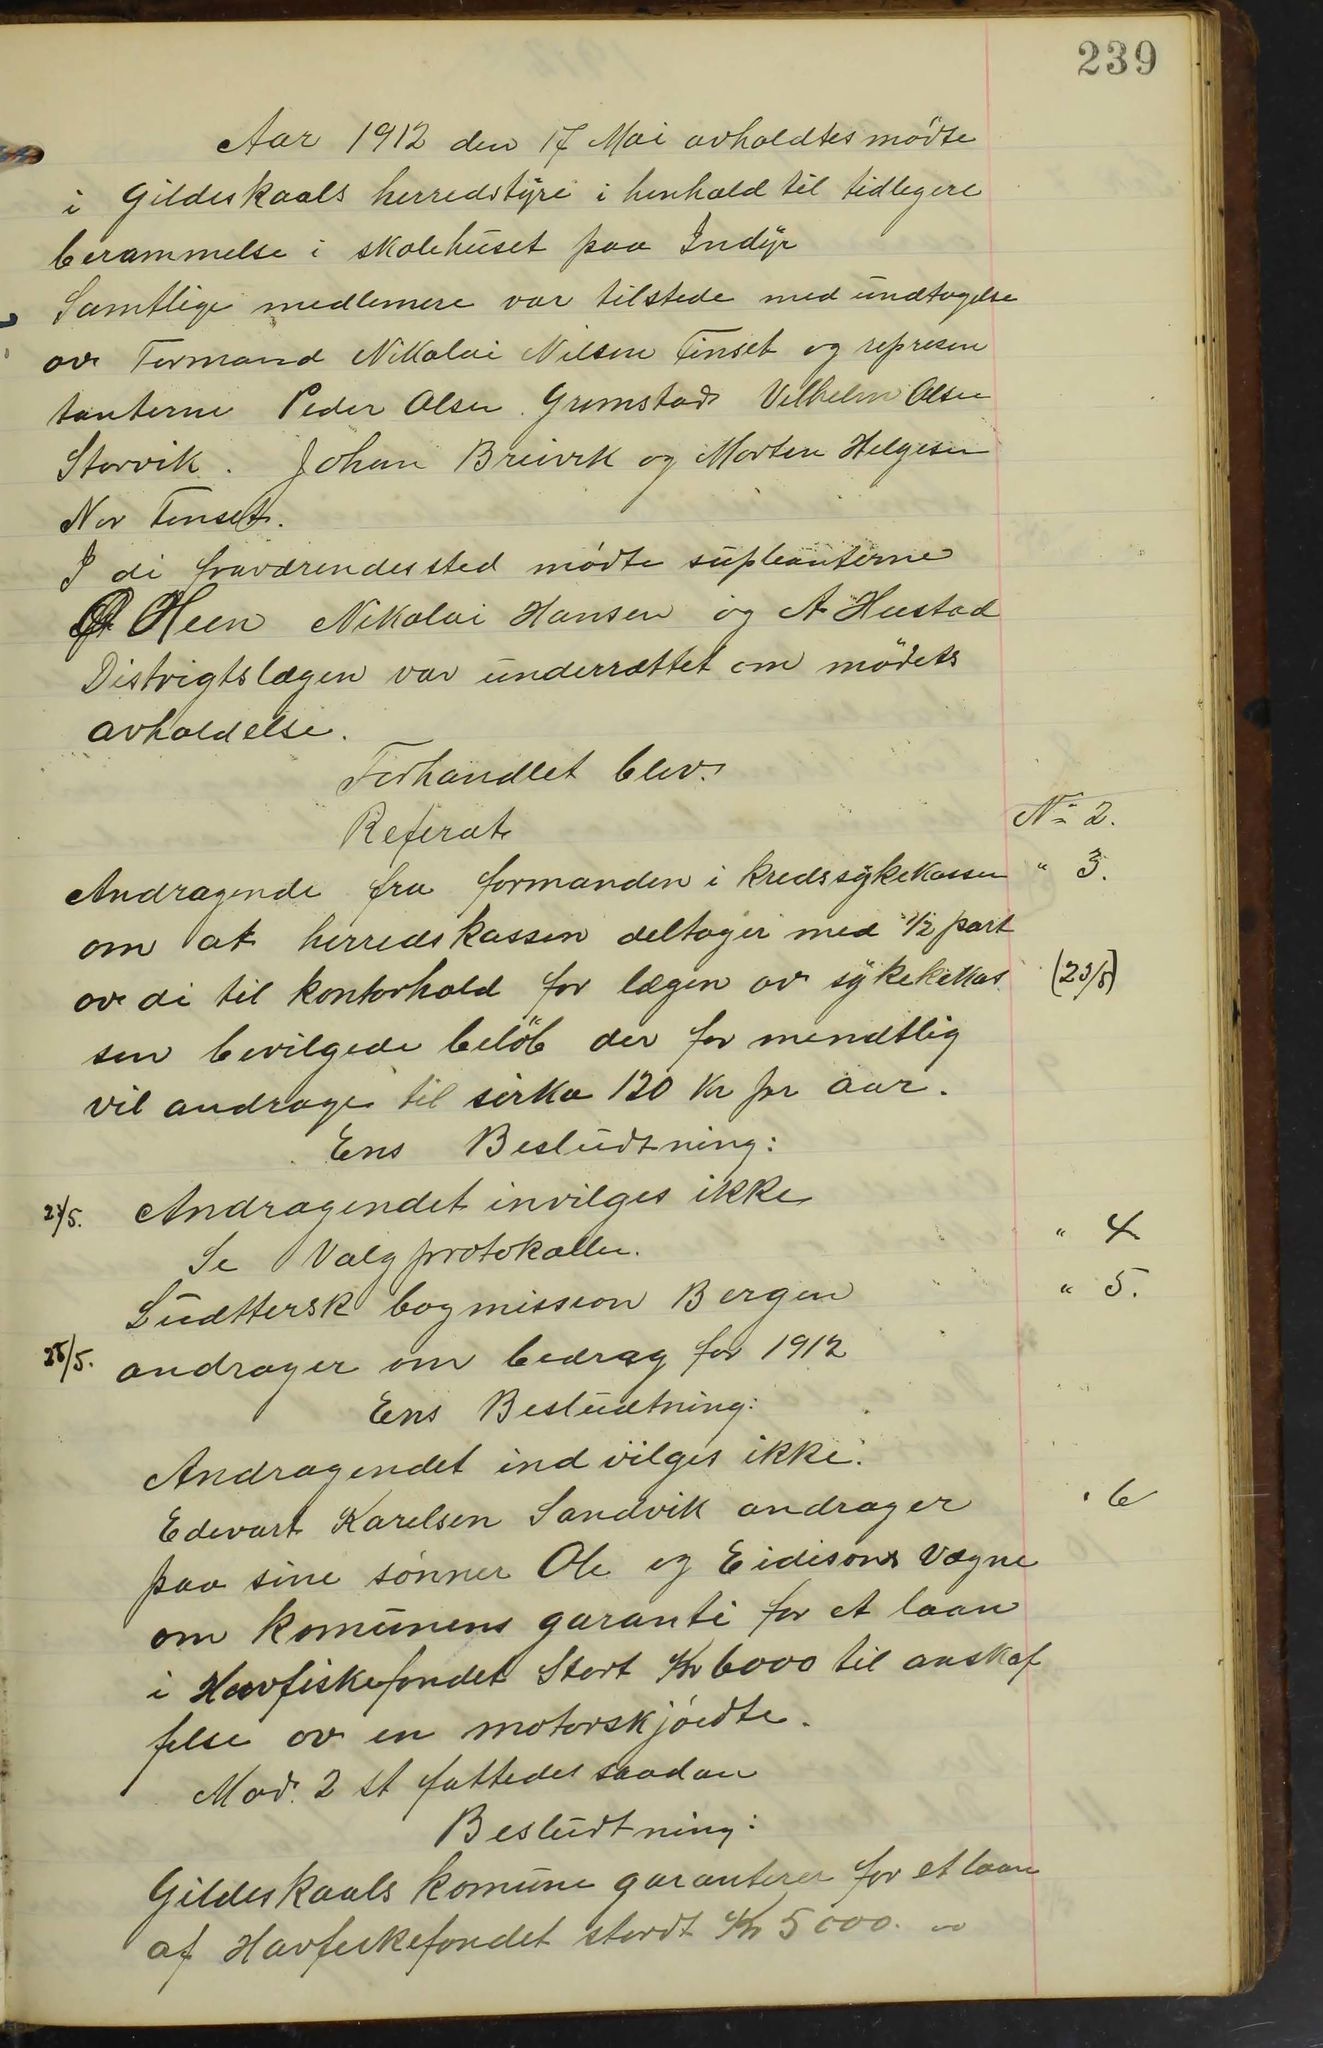 239
Aar 1912 den 17 Mai avholdtes mödte
i Gildeskaals herredstyre i henhold til tidligere
berammelse i skolehuset paa Indyr
Samtlige medlemere var tilstede med undtagelse
av Formand Nikolai Nilsen Finset og represen
tanterne Peder Olsen Grimstad Vilhelm Olsen
Storvik. Johan Breivik og Morten Helgesen
Nor Finset.
I de fraværendes sted mödte supleanterne
Heen Nikolai Hansen og A Hustad
Distrigtslægen var underrættet om mödets
avholdelse.
Forhandlet blev.
Referat No 2.
Andragende fra formanden i kredssykekassen " 3.
om at herredskassen deltager med 1/2 part
av de til kontorhold for lægen av sykekekas (23/5)
sen bevilgede belöb der for mendtlig
vil andrage til sirka 120 Kr pr aar.
Ens Besludtning:
23/5. Andragendet invilges ikke
Se Valgprotokollen. " 4
Ludttersk bogmission Bergen " 5.
25/5. andrager om bedrag for 1912
Ens Besludtning:
Andragendet indvilges ikke.
Edevart Karelsen Sandvik andrager " 6
paa sine sönner Ole og Eidisons vægne
om komunens garanti for et laan
i Havfiskefondet Stort Kr 6000 til anskaf
felse av en motorskjöidte.
Mod 2 st fattedes saadan
Besludtning:
Gildeskaals komune garanterer for et laan
af Havfiskefondet stordt Kr 5000.